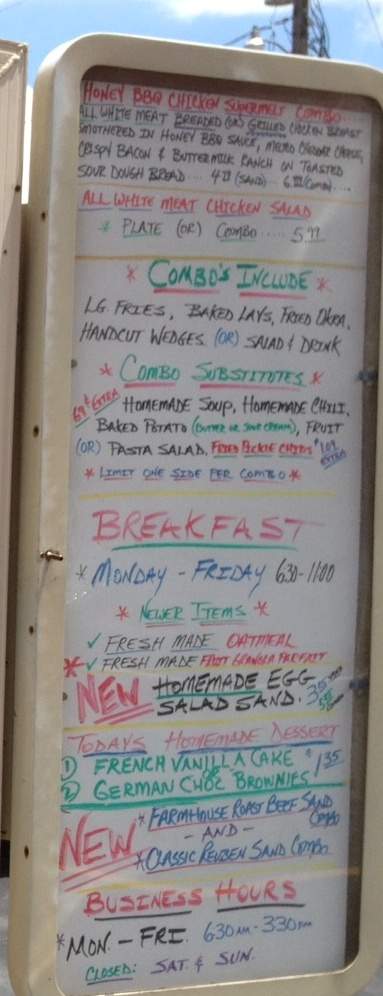 HONEY BBQ CHICKEN SUPERMELT COMBO....
ALL WHITE MEAT BREADED (OR) GRILLED CHICKEN BREAST
SMOTHERED IN HONEY BBQ SAUCE, MELTED CHEDDAR CHEESE,
CRISPY BACON & BUTTERMILK RANCH ON TOASTED
SOUR DOUGH BREAD.... (SAND)... (COMBO)....
ALL WHITE MEAT CHICKEN SALAD
* PLATE (OR) COMBO ..... 5.99
* COMBO'S INCLUDE *
LG. FRIES, BAKED LAYS, FRIED OKRA,
HANDCUT WEDGES (OR) SALAD & DRINK
* COMBO SUBSTITUTES *
69¢ EXTRA HOMEMADE SOUP, HOMEMADE CHILI,
BAKED POTATO (BUTTER OR SOUR CREAM), FRUIT
(OR) PASTA SALAD. FRIED PICKLE CHIPS $1.09 EXTRA
* LIMIT ONE SIDE PER COMBO *
BREAKFAST
* MONDAY - FRIDAY 630-1100
* NEWER ITEMS *
✓ FRESH MADE OATMEAL
* ✓ FRESH MADE FRUIT GRANOLA PARFAIT
NEW HOMEMADE EGG
SALAD SAND.
TODAYS HOMEMADE DESSERT
① FRENCH VANILLA CAKE $1.35
or
② GERMAN CHOC BROWNIES
NEW * FARMHOUSE ROAST BEEF SAND COMBO
- AND -
* CLASSIC REUBEN SAND COMBO
BUSINESS HOURS
* MON. - FRI. 630 AM - 330 PM
CLOSED: SAT. & SUN.